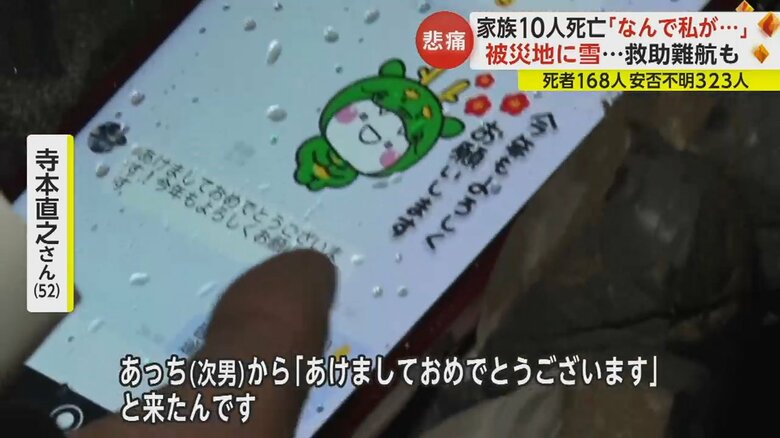 悲痛
家族10人死亡「なんで私が…」
被災地に雪…救助難航も
死者168人 安否不明323人
今年もよろしく
お願いします
あけましておめでとうございま
す！今年もよろしくお願
す
寺本直之さん
(52)
あっち(次男)から「あけましておめでとうございます」
と来たんです